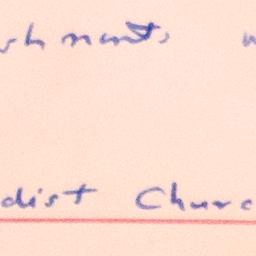 shments
dist Churc